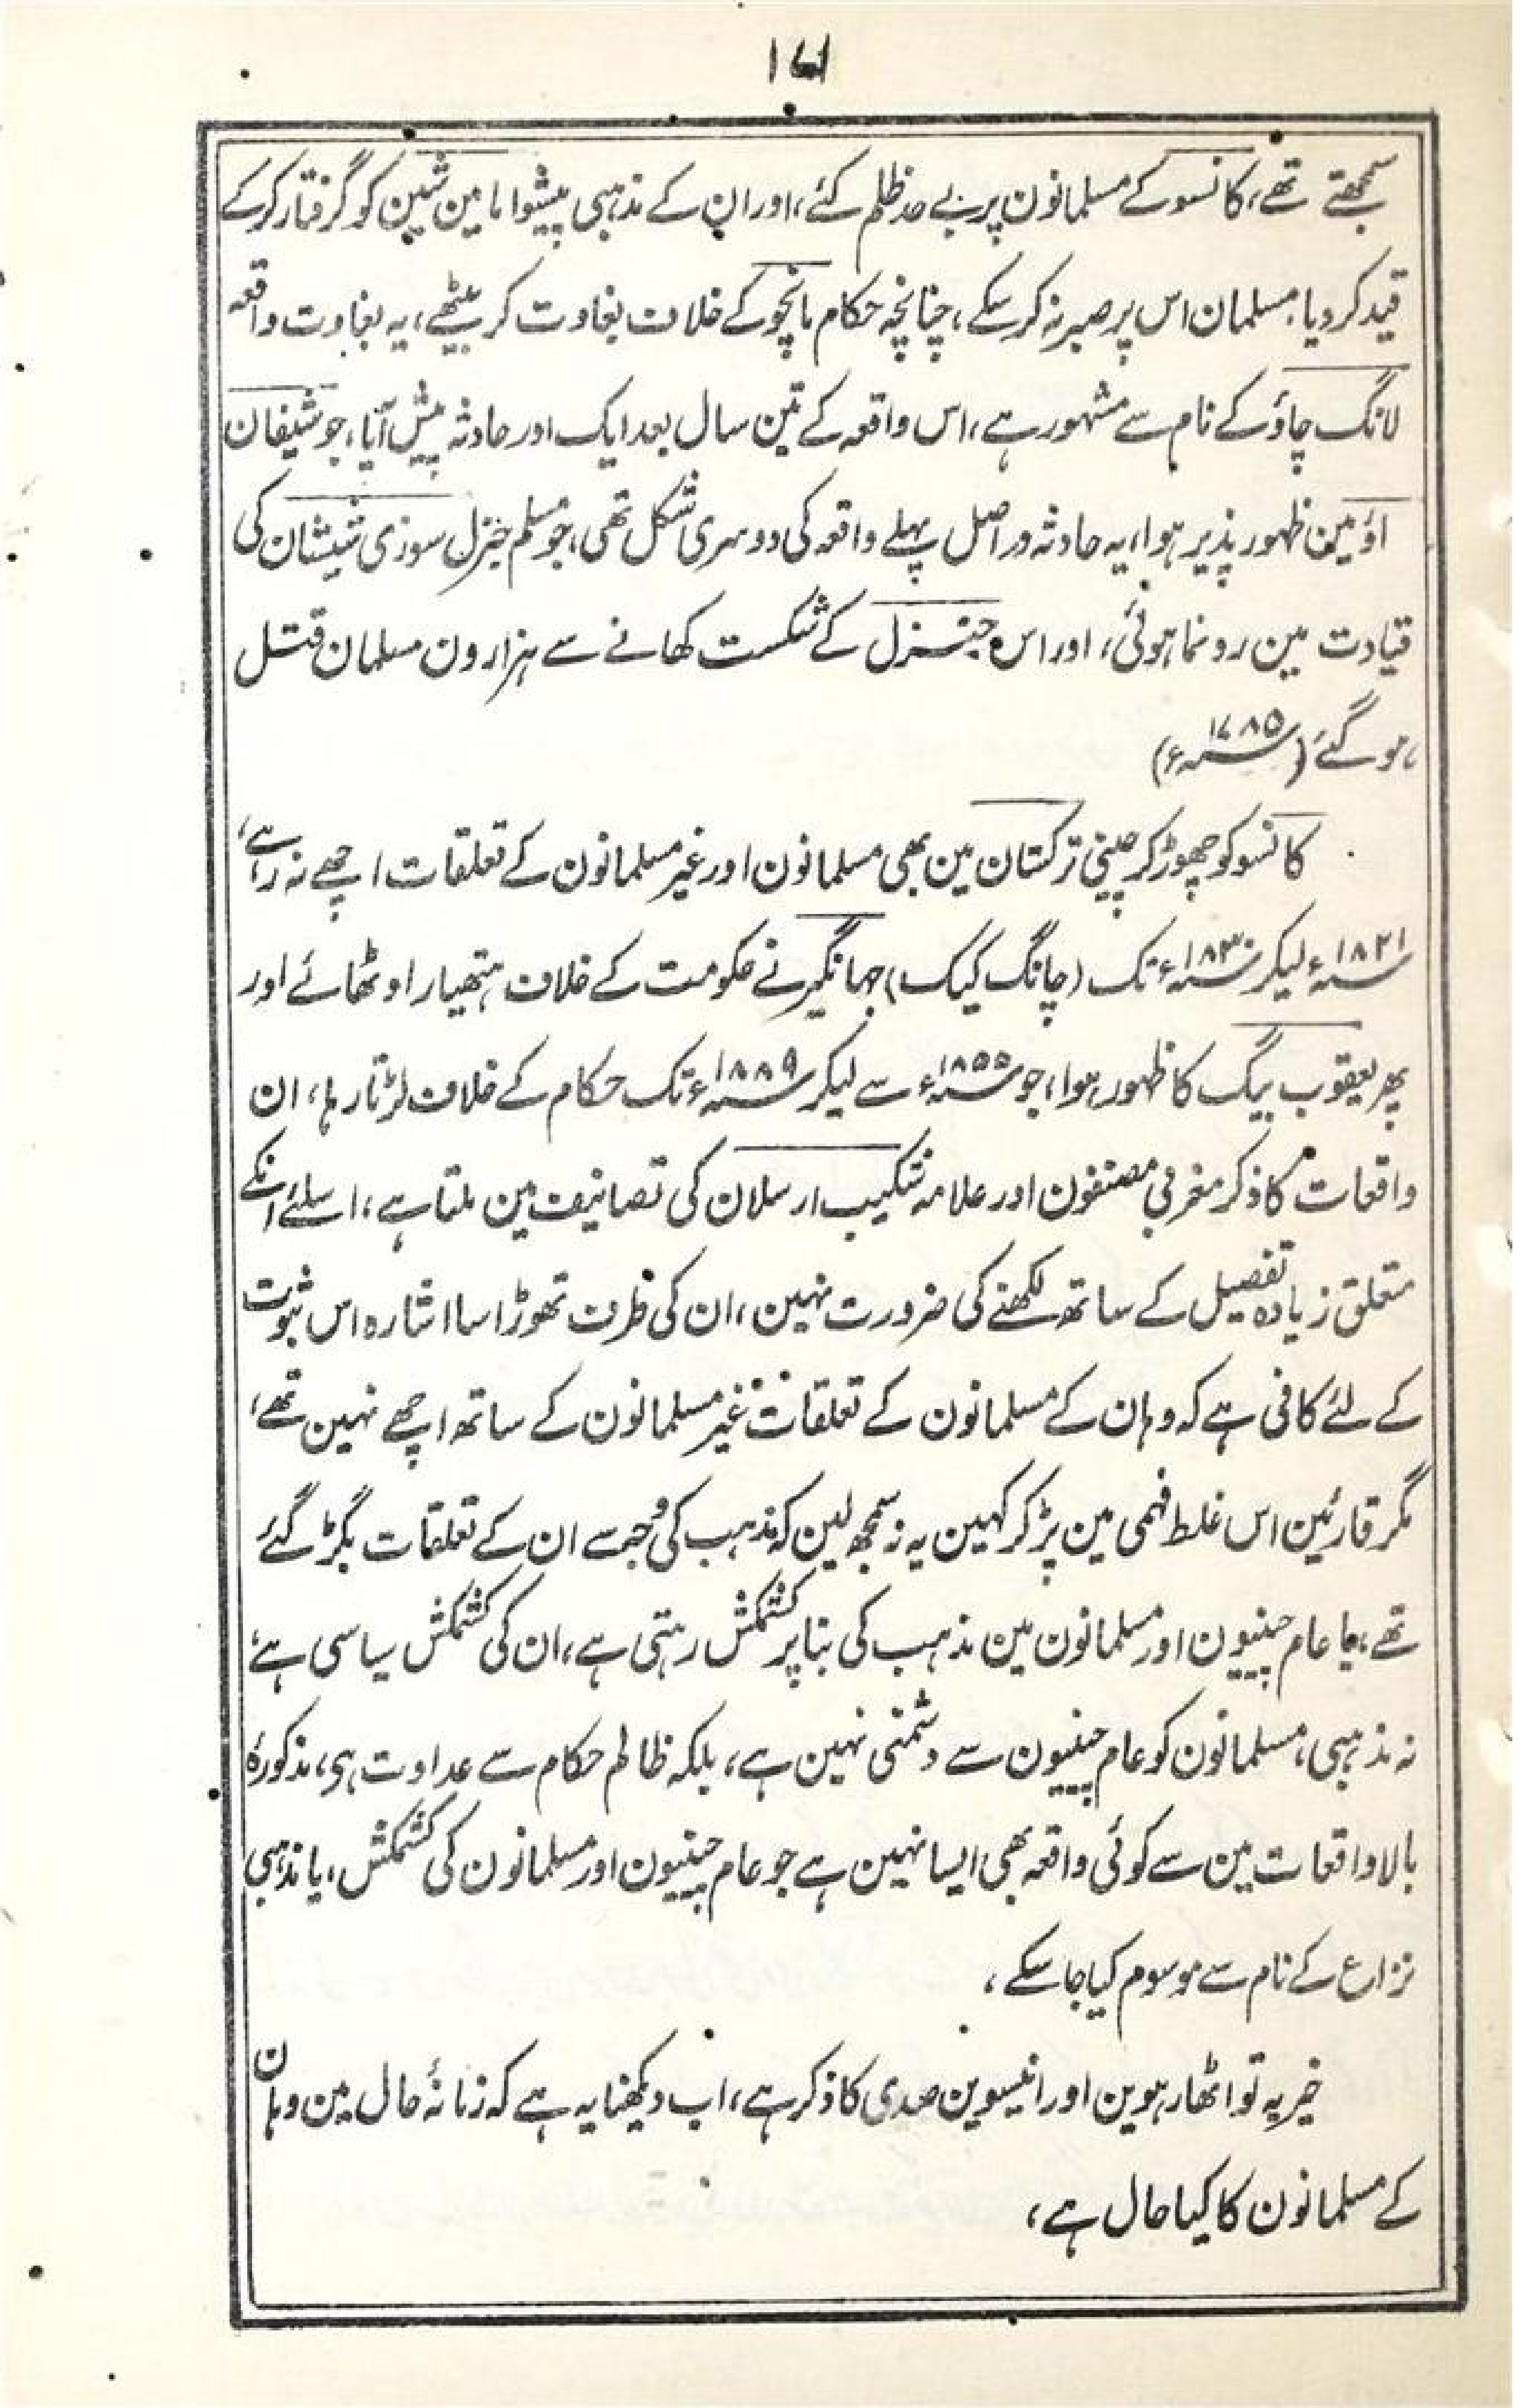 ۱۷۱
سمجھتے تھے، کانسو کے مسلمانون پر بے حد ظلم کئے، اور ان کے مذہبی پیشوا مامین شین کو گرفتار کرکے
قید کر دیا، مسلمان اس پر صبر نہ کر سکے، چنانچہ حکام مانچو کے خلاف بغاوت کر بیٹھے، یہ بغاوت واقعہ
لانگ چاؤ کے نام سے مشہور ہے، اس واقعہ کے تین سال بعد ایک اور حادثہ پیش آیا، جو شیفان
اؤ مین ظہور پذیر ہوا، یہ حادثہ در اصل پہلے واقعہ کی دوسری شکل تھی، جو مسلم جنرل سوزی شیشان کی
قیادت مین رونما ہوئی، اور اس جنرل کے شکست کھانے سے ہزارون مسلمان قتل
ہو گئے (۱۷۸۵ء)
کانسو کو چھوڑ کر چینی ترکستان مین بھی مسلمانون اور غیر مسلمانون کے تعلقات اچھے نہ رہے،
۱۸۲۱ء لیکر ۱۸۳۰ء تک (چانگ کیک) جہانگیر نے حکومت کے خلاف ہتھیار اوٹھائے اور
پھر یعقوب بیگ کا ظہور ہوا، جو ۱۸۵۵ء سے لیکر ۱۸۸۹ء تک حکام کے خلاف لڑتا رہا، ان
واقعات کا ذکر مغربی مصنفون اور علامہ شکیب ارسلان کی تصانیف مین ملتا ہے، اسلئے انکے
متعلق زیادہ تفصیل کے ساتھ لکھنے کی ضرورت نہین، ان کی طرف تھوڑا سا اشارہ اس ثبوت
کے لئے کافی ہے کہ وہان کے مسلمانون کے تعلقات غیر مسلمانون کے ساتھ اچھے نہین تھے،
مگر قارئین اس غلط فہمی مین پڑ کر کہین یہ نہ سمجھ لین کہ مذہب کی وجہ سے ان کے تعلقات بگڑ گئے
تھے، یا عام چینیون اور مسلمانون مین مذہب کی بنا پر کشمکش رہتی ہے، ان کی کشمکش سیاسی ہے،
نہ مذہبی، مسلمانون کو عام چینیون سے دشمنی نہین ہے، بلکہ ظالم حکام سے عداوت ہی، مذکورۂ
بالا واقعات مین سے کوئی واقعہ بھی ایسا نہین ہے جو عام چینیون اور مسلمانون کی کشمکش، یا مذہبی
نزاع کے نام سے موسوم کیا جا سکے،
خیر یہ تو اٹھارہوین اور انیسوین صدی کا ذکر ہے، اب دیکھنا یہ ہے کہ زمانۂ حال مین وہان
کے مسلمانون کا کیا حال ہے،